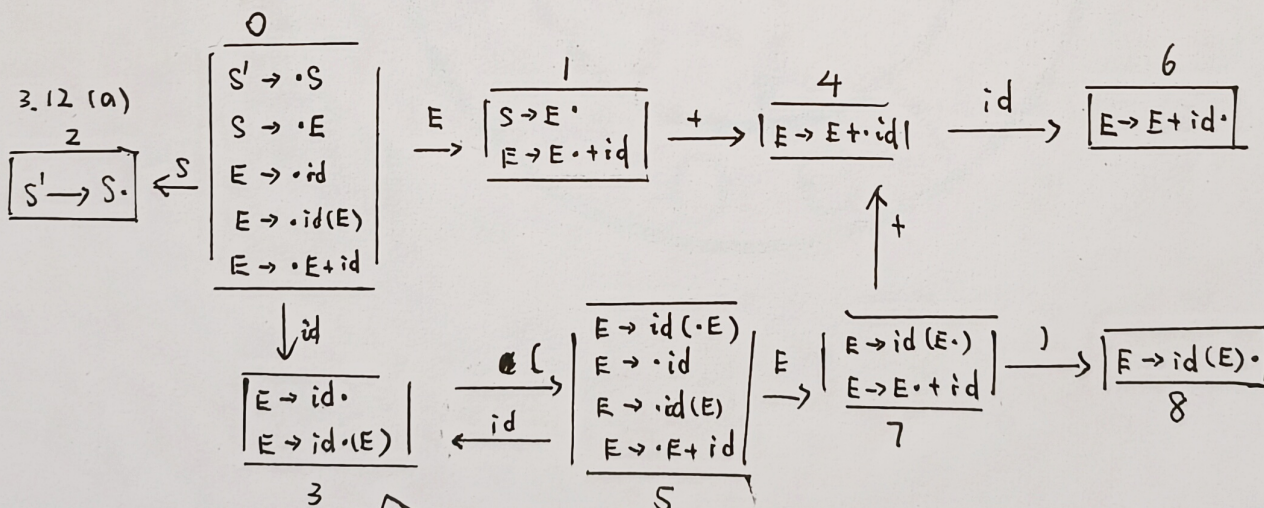 3.12 (a)
0
S' → ·S
S → ·E
E → ·id
E → ·id(E)
E → ·E+id
S
2
S' → S·
E
1
S → E·
E → E·+id
+
4
E → E+·id
id
6
E → E+id·
id
3
E → id·
E → id·(E)
(
id
5
E → id(·E)
E → ·id
E → ·id(E)
E → ·E+id
E
7
E → id(E·)
E → E·+id
+
)
8
E → id(E)·